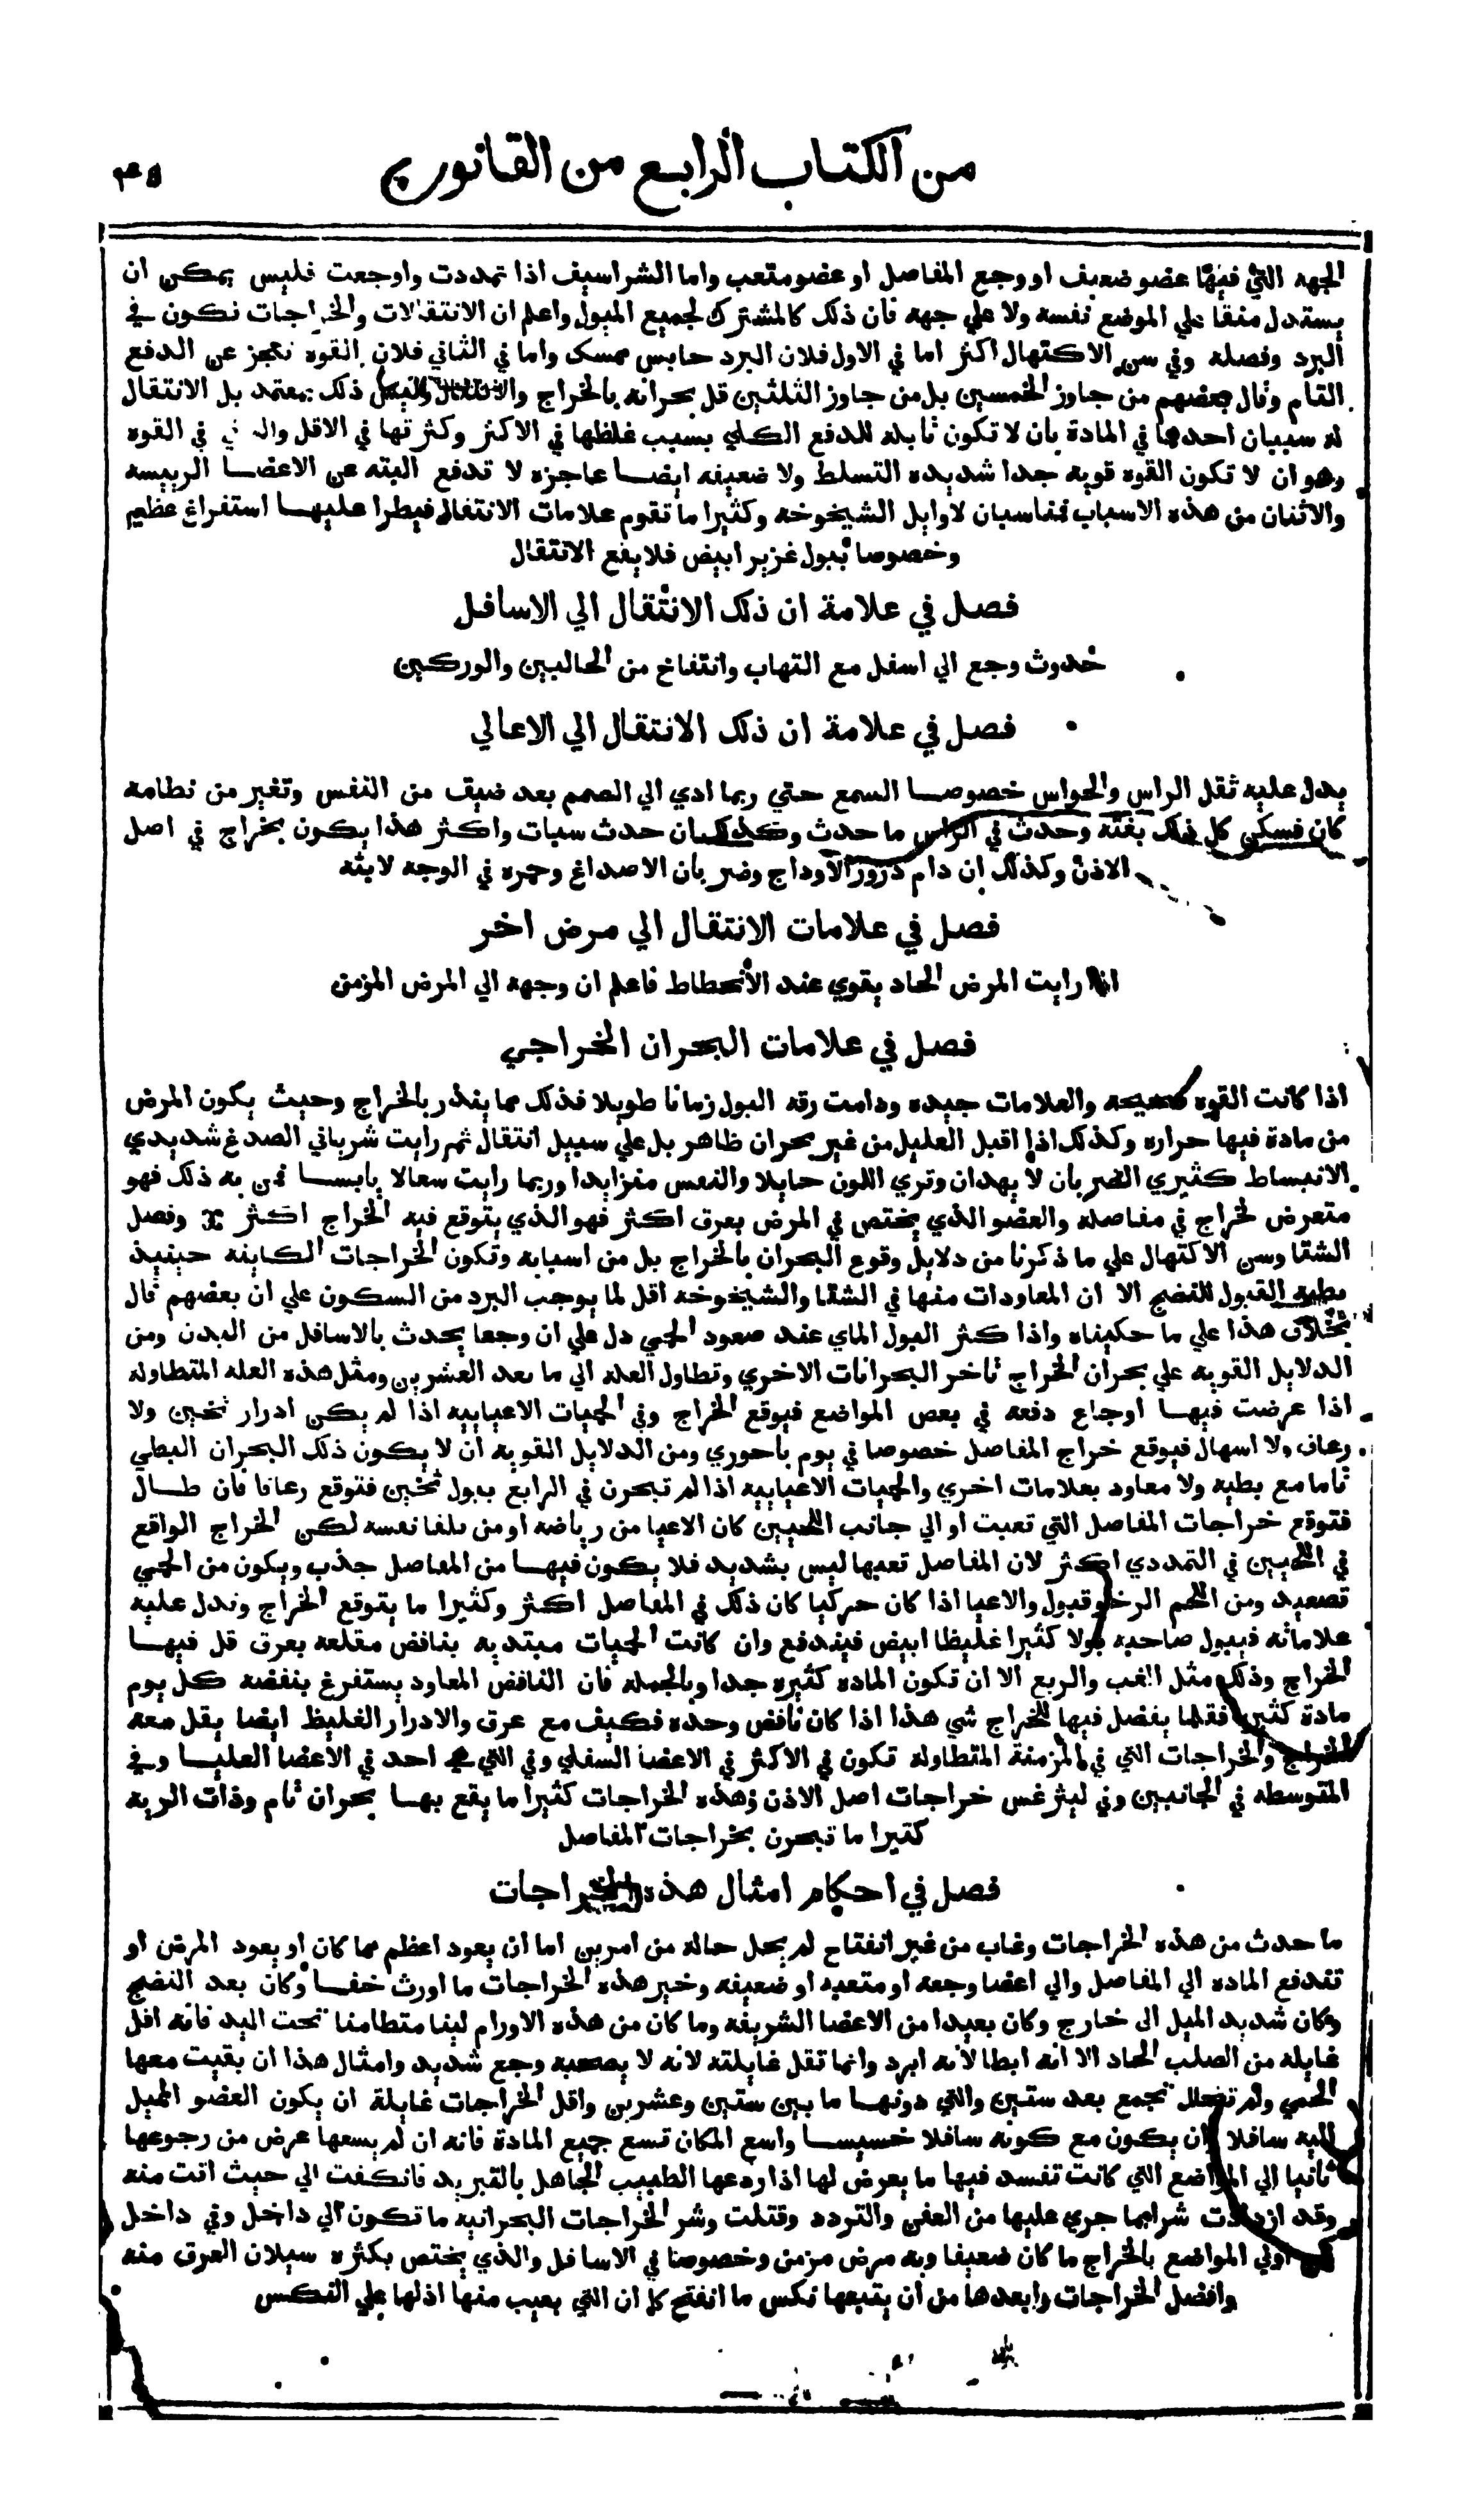 من الكتاب الرابع من القانون
الجهه التي فيها عضو ضعيف او وجع المفاصل او عضو متعب واما الشراسيف اذا تمددت واوجعت فليس يمكن ان
يستدل منها علي الموضع نفسه ولا علي جهه فان ذلك كالمشترك لجميع الميول واعلم ان الانتقالات والخراجات تكون في
البرد وفصله وفي سن الاكتهال اكثر اما في الاول فلان البرد حابس ممسك واما في الثاني فلان القوه تعجز عن الدفع
التام وقال بعضهم من جاوز الخمسين بل من جاوز الثلثين قل بحرانه بالخراج والانتقال وليس ذلك بمعتمد بل الانتقال
له سببان احدهما في المادة بان لا تكون قابله للدفع الكلي بسبب غلظها في الاكثر وكثرتها في الاقل في القوه
وهو ان لا تكون القوه قويه جدا شديده التسلط ولا ضعيفه ايضا عاجزه لا تدفع البته عن الاعضا الرييسه
والاثنان من هذه الاسباب متناسبان لاوايل الشيخوخه وكثيرا ما تقوم علامات الانتقال فيطرا عليها استفراغ عظيم
وخصوصا ببول غزير ابيض فلا يقع الانتقال
فصل في علامة ان ذلك الانتقال الي الاسافل
حدوث وجع الي اسفل مع التهاب وانتفاخ من الحالبين والوركين
فصل في علامة ان ذلك الانتقال الي الاعالي
يدل عليه ثقل الراس والحواس خصوصا السمع حتي ربما ادي الي الصمم بعد ضيق من النفس وتغير من نظامه
كان فسكن كل ذلك بغته وحدث في الراس ما حدث وكذلك ان حدث سبات واكثر هذا يكون بخراج في اصل
الاذن وكذلك ان دام درور الاوداج وضربان الاصداغ وحمره في الوجه لابثه
فصل في علامات الانتقال الي مرض اخر
اذا رايت المرض الحاد يقوي عند الانحطاط فاعلم ان وجهه الي المرض المزمن
فصل في علامات البحران الخراجي
اذا كانت القوه صحيحه والعلامات جيده ودامت رقه البول زمانا طويلا فذلك مما ينذر بالخراج وحيث يكون المرض
من مادة فيها حراره وكذلك اذا اقبل العليل من غير بحران ظاهر بل علي سبيل انتقال ثم رايت شرياني الصدغ شديدي
الانبساط كثيري الضربان لا يهدان وتري اللون حايلا والنفس متزايدا وربما رايت سعالا يابسا فمن به ذلك فهو
متعرض لخراج في مفاصله والعضو الذي يختص في المرض بعرق اكثر فهو الذي يتوقع فيه الخراج اكثر وفصل
الشتا وسن الاكتهال علي ما ذكرنا من دلايل وقوع البحران بالخراج بل من اسبابه وتكون الخراجات الكاينه حينيذ
بطيه القبول للنضج الا ان المعاودات منها في الشتا والشيخوخه اقل لما يوجب البرد من السكون علي ان بعضهم قال
بخلاف هذا علي ما حكيناه واذا كثر البول الماي عند صعود الحمي دل علي ان وجعا يحدث بالاسافل من البدن ومن
الدلايل القويه علي بحران الخراج تاخر البحرانات الاخري وتطاول العله الي ما بعد العشرين ومثل هذه العله المتطاوله
اذا عرضت فيها اوجاع دفعه في بعض المواضع فيوقع الخراج وفي الحميات الاعيابيه اذا لم يكن ادرار ثخين ولا
رعاف ولا اسهال فيوقع خراج المفاصل خصوصا في يوم باحوري ومن الدلايل المقويه ان لا يكون ذلك البحران البطي
تاما مع بطيه ولا معاود بعلامات اخري والحميات الاعيابيه اذا لم تبحرن في الرابع ببول ثخين فتوقع رعافا فان طال
فتوقع خراجات المفاصل التي تعبت او الي جانب اللحيين كان الاعيا من رياضه او من تلقا نفسه لكن الخراج الواقع
في اللحيين في التمددي اكثر لان المفاصل تعبها ليس بشديد فلا يكون فيها من المفاصل جذب ويكون من الحمي
تصعيد ومن اللحم الرخو قبول والاعيا اذا كان حركيا كان ذلك في المفاصل اكثر وكثيرا ما يتوقع الخراج وتدل عليه
علاماته فيبول صاحبه بولا كثيرا غليظا ابيض فيندفع وان كانت الحميات مبتديه بنافض مقلعه بعرق قل فيها
الخراج وذلك مثل الغب والربع الا ان تكون الماده كثيره جدا وبالجمله فان النافض المعاود يستفرغ بنفضه كل يوم
مادة كثيره فقلما يفضل فيها للخراج شي هذا اذا كان نافض وحده فكيف مع عرق والادرار الغليظ ايضا يقل معه
الخراج والخراجات التي في المزمنة المتطاولة تكون في الاكثر في الاعضا السفلي وفي التي هي احد في الاعضا العليا وفي
المتوسطه في الجانبين وفي ليثرغس خراجات اصل الاذن وهذه الخراجات كثيرا ما يقع بها بحران تام وذات الريه
كثيرا ما تبحرن بخراجات المفاصل
فصل في احكام امثال هذه الخراجات
ما حدث من هذه الخراجات وغاب من غير انفتاح لم يخل حاله من امرين اما ان يعود اعظم مما كان او يعود المرض او
تندفع الماده الي المفاصل والي اعضا وجعه او متعبه او ضعيفه وخير هذه الخراجات ما اورث خفا وكان بعد النضج
وكان شديد الميل الى خارج وكان بعيدا من الاعضا الشريفه وما كان من هذه الاورام لينا متطامنا تحت اليد فانه اقل
غايله من الصلب الحاد الا انه ابطا لانه ابرد وانما تقل غايلته لانه لا يصحبه وجع شديد وامثال هذا ان بقيت معها
الحمي ولم تتحلل تجمع بعد ستين والتي دونها ما بين ستين وعشرين واقل الخراجات غايلة ان يكون العضو المميل
اليه سافلا وان يكون مع كونه سافلا خسيسا واسع المكان تسع جميع المادة فانه ان لم يسعها عرض من رجوعها
ثانيا الي المواضع التي كانت تفسد فيها ما يعرض لها اذا ردعها الطبيب الجاهل بالتبريد فانكفت الي حيث اتت منه
وقد ازدادت شرا بما جري عليها من العفن والتردد وقتلت وشر الخراجات البحرانيه ما تكون الي داخل وفي داخل
اولي المواضع بالخراج ما كان ضعيفا وبه مرض مزمن وخصوصا في الاسافل والذي يختص بكثره سيلان العرق منه
وافضل الخراجات وابعدها من ان يتبعها نكس ما انفتح كما ان التي يغيب منها ادلها علي النكس